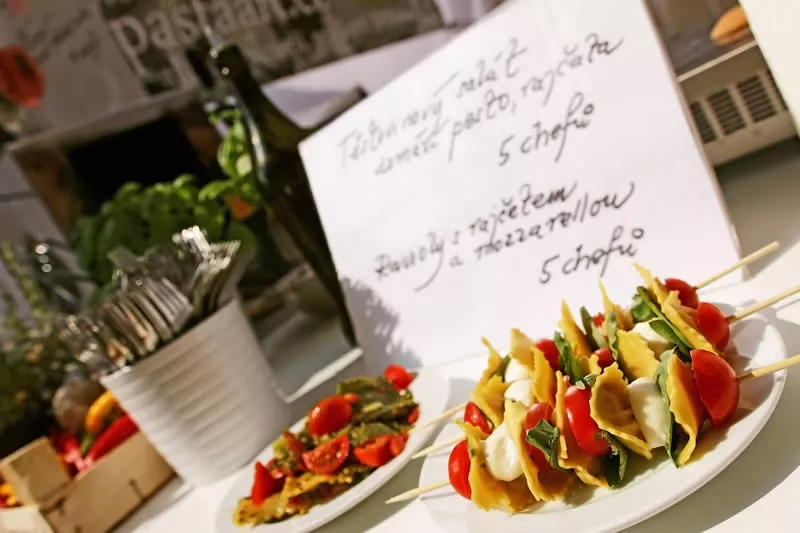 Pastaart.cz
Těstovinový salát
domácí pesto, rajčata
5 chefů
Ravioly s rajčetem
a mozzarellou
5 chefů